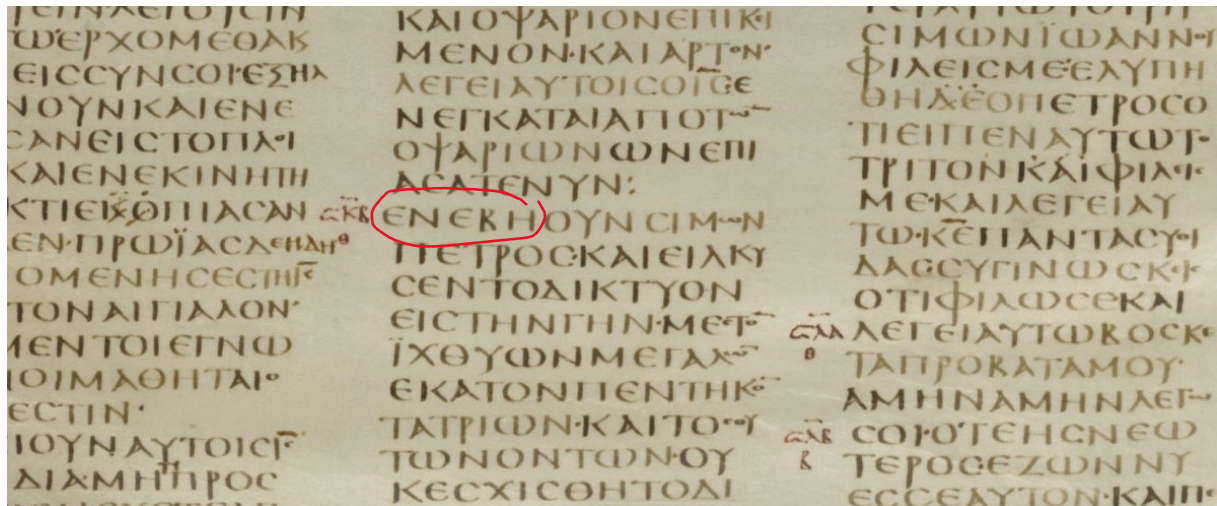 ΤΩΕΡΧΟΜΕΘΑΚ
ΕΙCCΥΝCΟΙ·ΕΞΗΛ
ΝΟΥΝΚΑΙΕΝΕ
CΑΝΕΙCΤΟΠΛΟΙ
ΚΑΙΕΝΕΚΙΝΗΤΗ
ΚΤΙΕΙΧΟΠΙΑCΑΝ
ΕΝ·ΠΡΩΪΑCΔΕΗΔΗ
ΟΜΕΝΗCΕCΤΗΙC
ΤΟΝΑΙΓΙΑΛΟΝ·
ΜΕΝΤΟΙΕΓΝΩ
ΟΙΜΑΘΗΤΑΙΟ
ΕCΤΙΝ·
ΙΟΥΝΑΥΤΟΙCΙC
ΔΙΑ·ΜΗΤΙΠΡΟC
ΚΑΙΟΨΑΡΙΟΝΕΠΙΚΙ
ΜΕΝΟΝ·ΚΑΙΑΡΤΟΝ·
ΛΕΓΕΙΑΥΤΟΙCΟΙC·Ε
ΝΕΓΚΑΤΑΙΑΠΟΤΩ
ΟΨΑΡΙΩΝΩΝΕΠΙ
ΑCΑΤΕΝΥΝ:
CΚΒ
Θ
ΕΝΕΒΗΟΥΝCΙΜΩΝ
ΠΕΤΡΟC·ΚΑΙΕΙΛΚΥ
CΕΝΤΟΔΙΚΤΥΟΝ
ΕΙCΤΗΝΓΗΝ·ΜΕCΤΟ
ΪΧΘΥΩΝΜΕΓΑΛΩ
ΕΚΑΤΟΝΠΕΝΤΗΚΟ
ΤΑΤΡΙΩΝ·ΚΑΙΤΟCΟΥ
ΤΩΝΟΝΤΩΝ·ΟΥ
ΚΕCΧΙCΘΗΤΟΔΙ
CΙΜΩΝΪΩΑΝΝΟΥ
ΦΙΛΕΙCΜΕ·ΕΛΥΠΗ
ΘΗΔΕΟΠΕΤΡΟCΟ
ΤΙΕΙΠΕΝΑΥΤΩΤΟ
ΤΡΙΤΟΝ·ΚΑΙΦΙΛΕΙC
ΜΕ·ΚΑΙΛΕΓΕΙΑΥ
ΤΩ·ΚΕΠΑΝΤΑCΥΟΙ
ΔΑC·CΥΓΙΝΩCΚΕΙC
ΟΤΙΦΙΛΩCΕΚΑΙ
CΛΑ
Θ
ΛΕΓΕΙΑΥΤΩΒΟCΚΕ
ΤΑΠΡΟΒΑΤΑΜΟΥ·
ΑΜΗΝΑΜΗΝΛΕΓΩ
CΛΒ
Β
CΟΙ·ΟΤΕΗCΝΕΩ
ΤΕΡΟC·ΕΖΩΝΝΥ
ΕCCΕΑΥΤΟΝ·ΚΑΙΠΕ